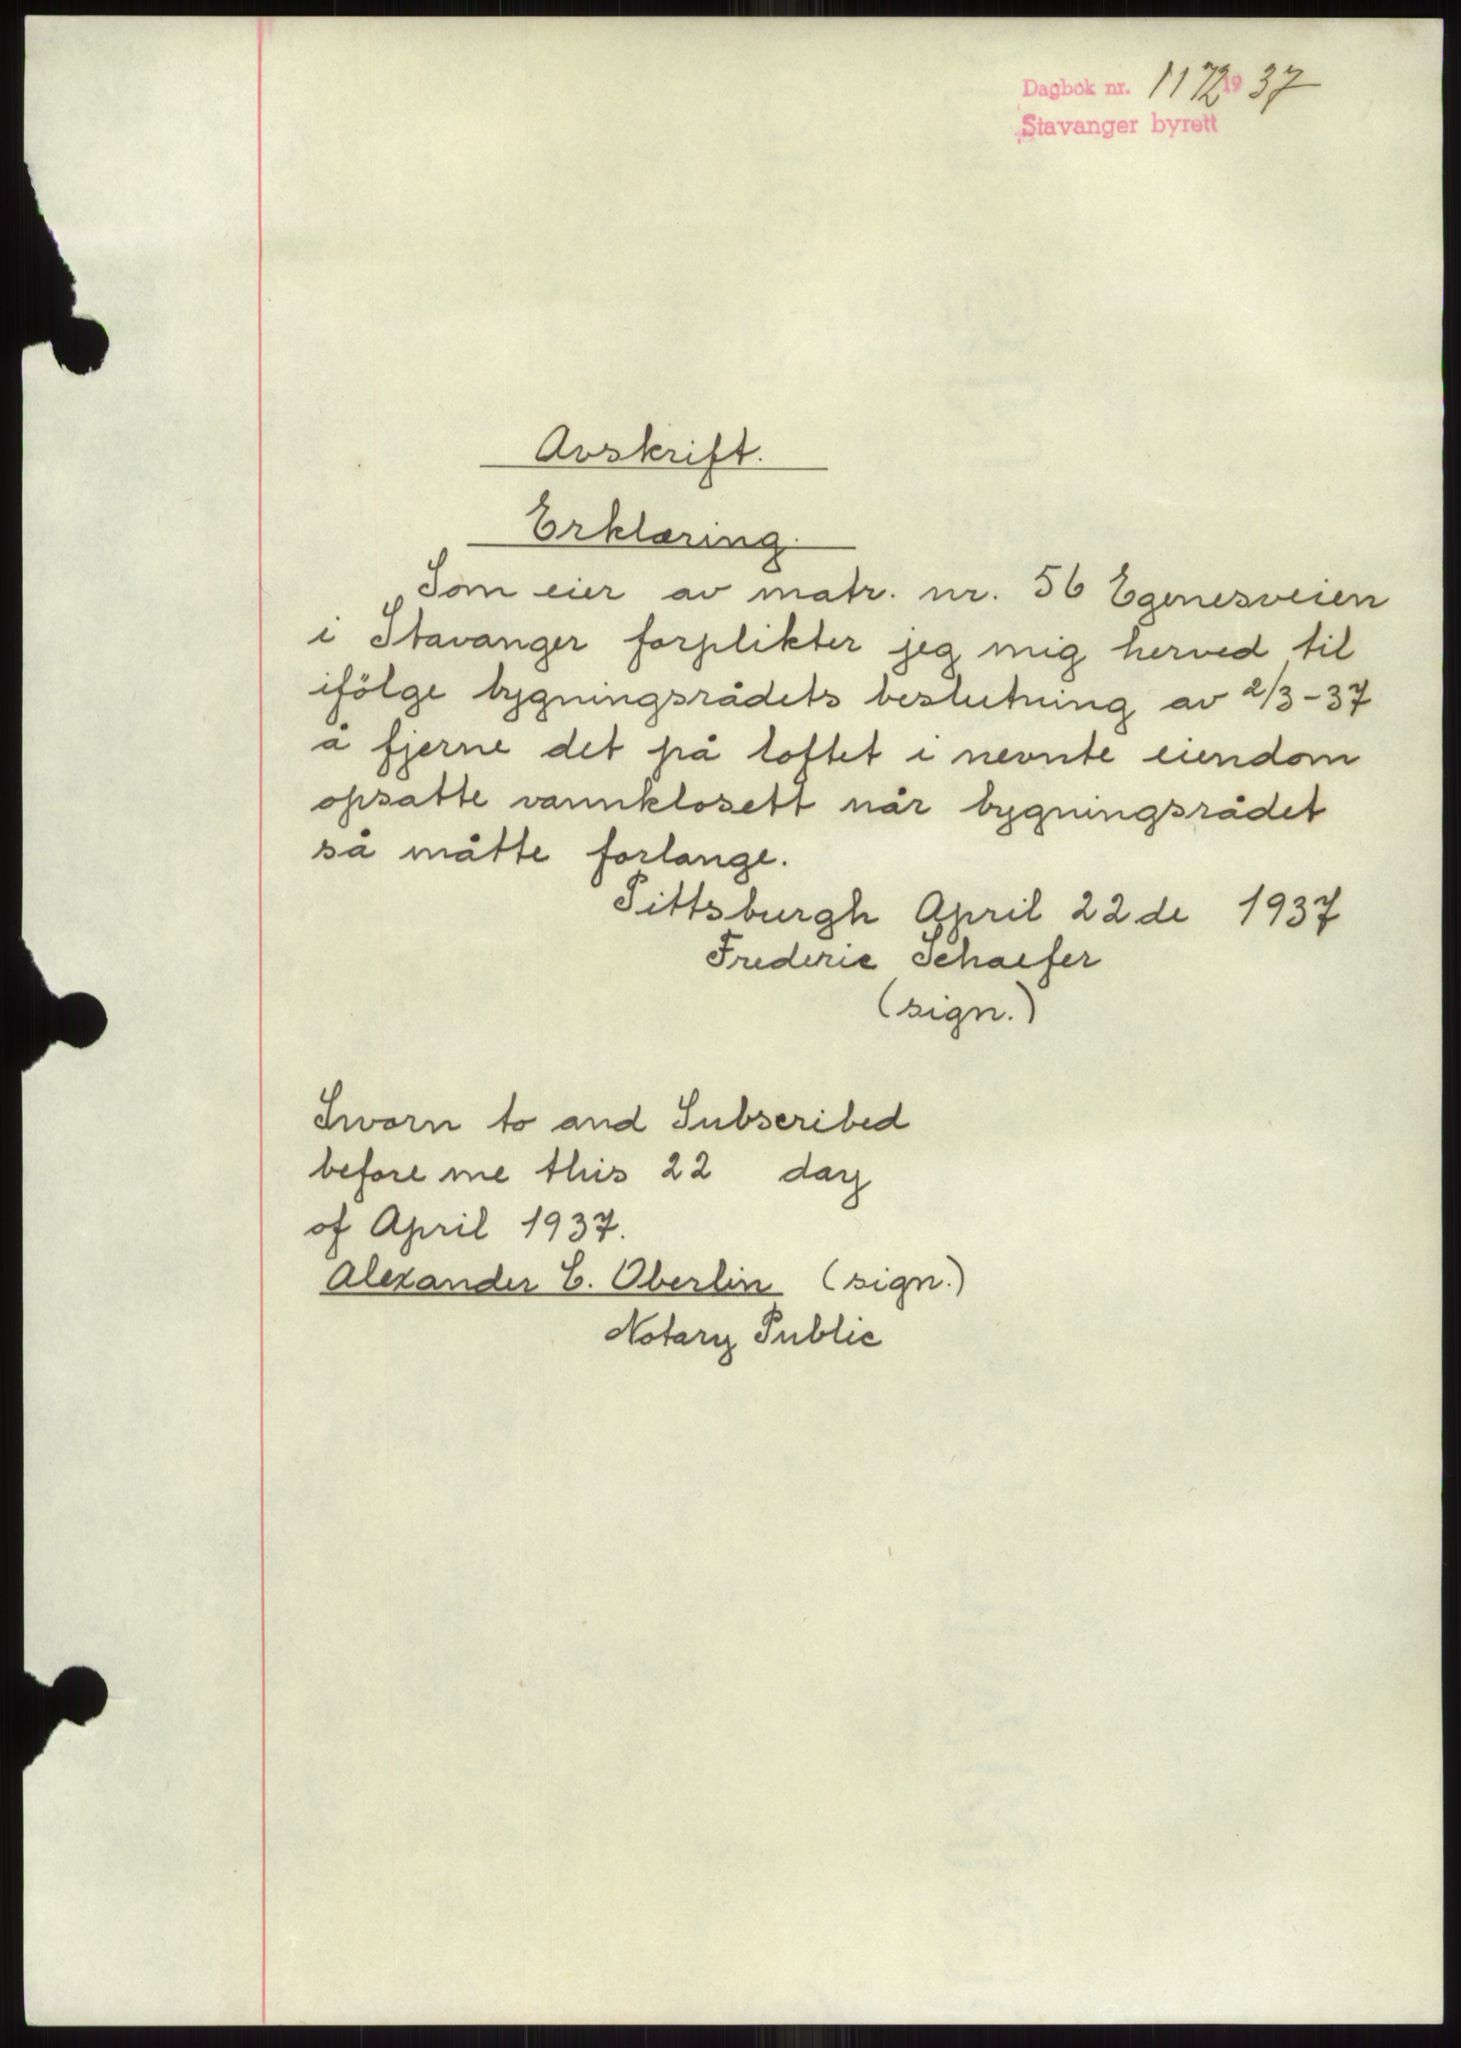 Dagbok nr. 1172 1937
Stavanger byrett
Avskrift.
Erklæring.
Som eier av matr. nr. 56 Egenesveien
i Stavanger forplikter jeg mig herved til
ifölge bygningsrådets beslutning av 2/3-37
å fjerne det på loftet i nevnte eiendom
opsatte vannklosett når bygningsrådet
så måtte forlange.
Pittsburgh April 22de 1937
Frederic Schaefer
(sign.)
Sworn to and Subscribed
before me this 22 day
of April 1937.
Alexander E. Oberlin (sign.)
Notary Public